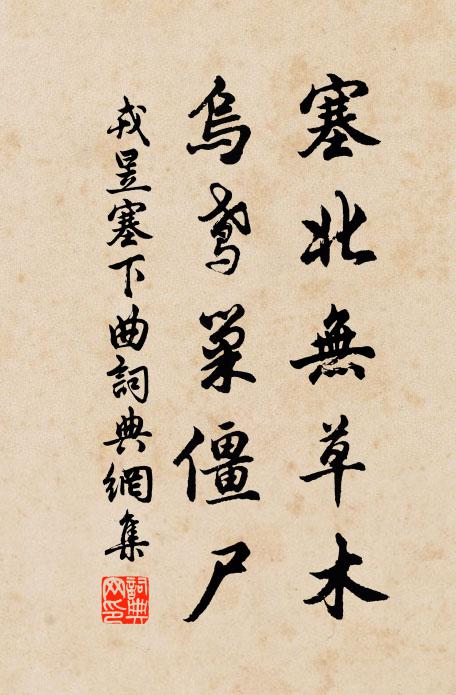 塞北無草木
烏鳶巢僵尸
戎昱塞下曲詞典網集
詞典網印